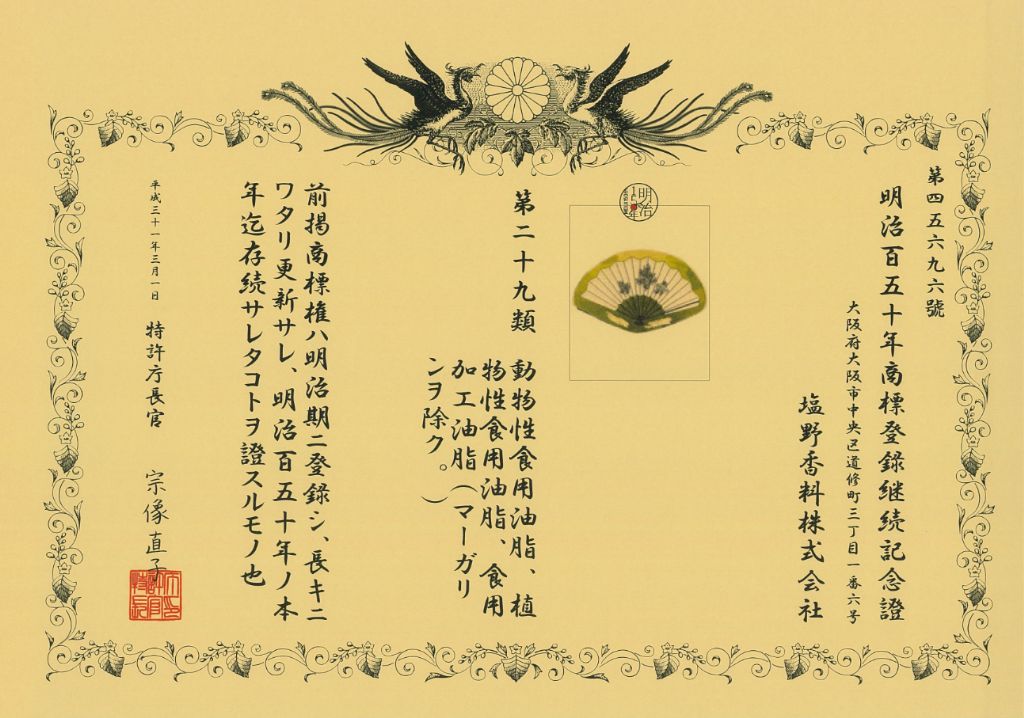 第四五六九九六號
明治百五十年商標登錄継続記念證
大阪府大阪市中央区道修町三丁目一番六号
塩野香料株式会社
明治
第二十九類
動物性食用油脂、植
物性食用油脂、食用
加工油脂(マーガリ
ンヲ除ク。)
前掲商標権ハ明治期ニ登錄シ、長キニ
ワタリ更新サレ、明治百五十年ノ本
年迄存続サレタコトヲ證スルモノ也
平成三十一年三月一日
特許庁長官
宗像直子